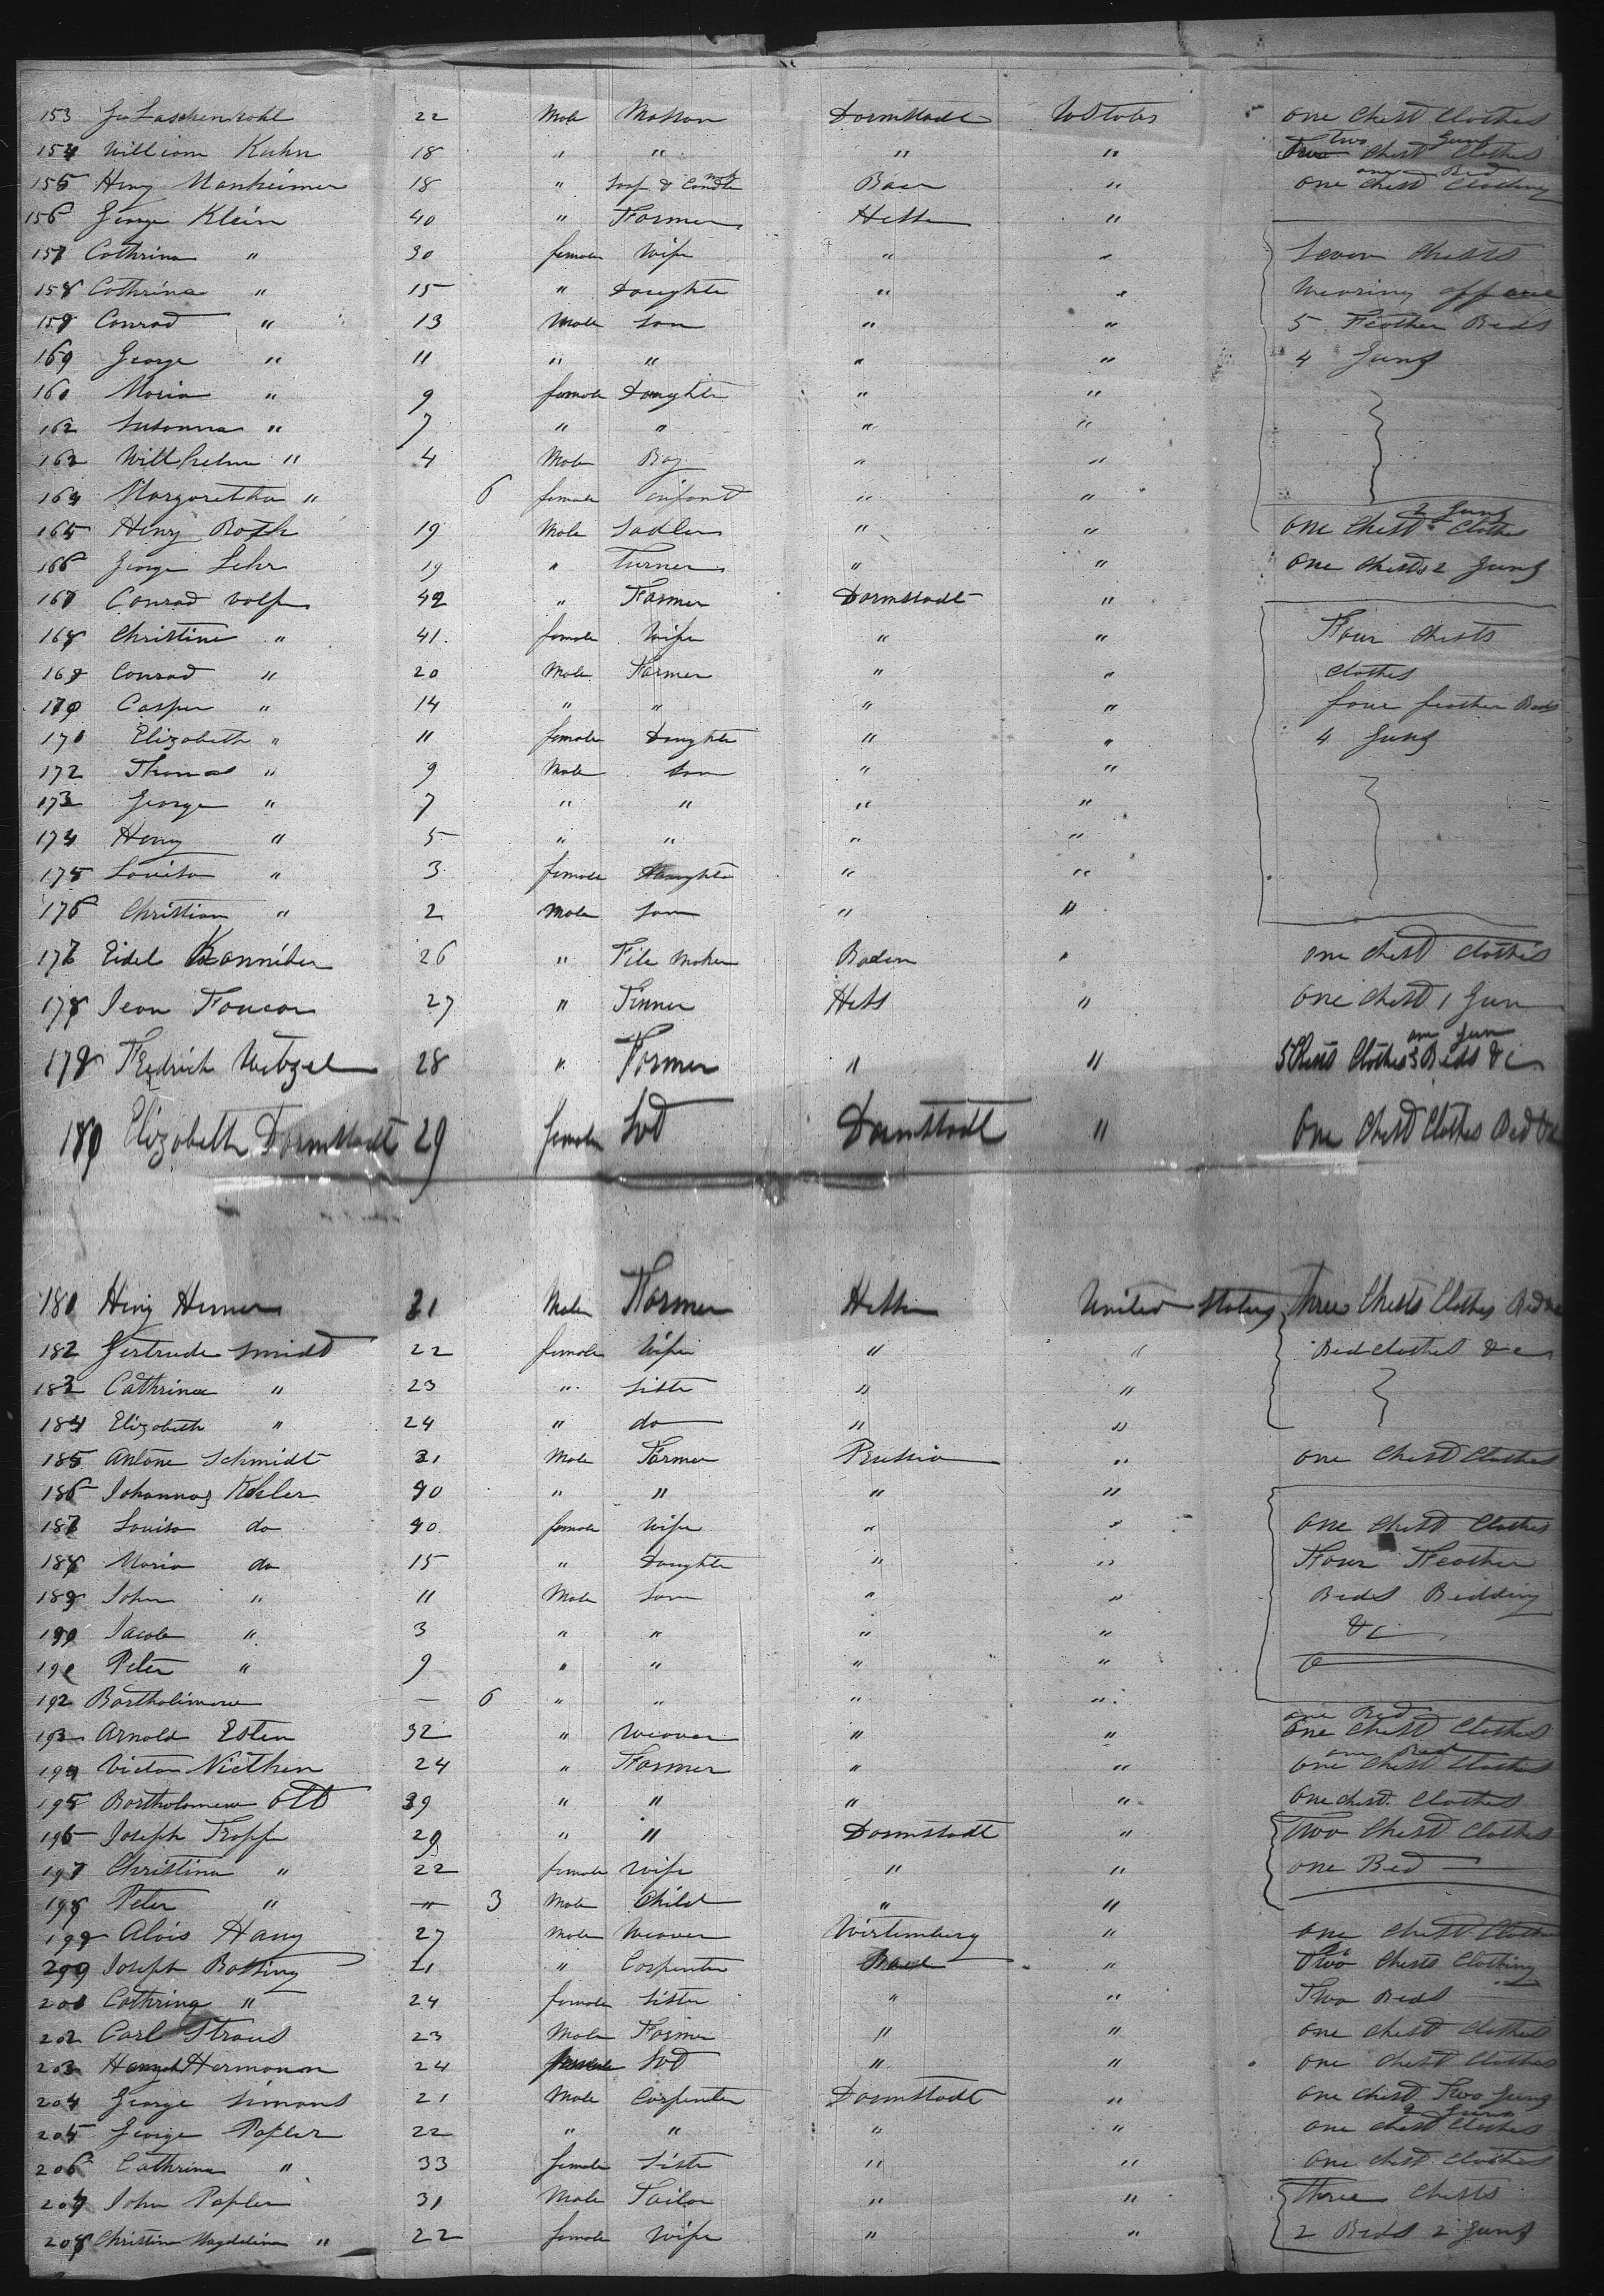 153 Geo Laschenkohl 22 Male Masson Darmstadt U States one Chest Clothes
two Guns
154 William Kuhn 18 " " " " Chest Clothes
one Bed
155 Heny Manheimer 18 " Soap & Candle mk " one Chest Clothing
156 George Klein 40 " Farmer Hessen "
157 Cathrina " 30 female Wife " " Seven Chests
158 Cathrina " 15 " Daughter " " Wearing apparel
159 Conrad " 13 Male Son " " 5 Feather Beds
160 George " 11 " " " " 4 Guns
161 Maria " 9 female Daughter " "
162 Susanna " 7 " " " "
163 Willhelm " 4 Male Boy " "
164 Margaretha " 6 female infant " "
2 Guns
165 Henry Roth 19 Male Sadler " " One Chest Clothes
166 George Lehr 19 " Turner " " One Chests 2 Guns
167 Conrad Wolf 42 " Farmer Darmstadt "
168 Christine " 41 female Wife " " Four Chests
169 Conrad " 20 Male Farmer " " Clothes
170 Casper " 14 " " " " four feather Beds
171 Elizabeth " 11 female Daughter " " 4 Guns
172 Thomas " 9 Male Son " "
173 George " 7 " " " "
174 Henry " 5 " " " "
175 Louisa " 3 female Daughter " "
176 Christian " 2 Male Son " "
177 Eidel 26 " File Maker Baden " One Chest Clothes
178 Jean Foucar 27 " Tinner Hess " One Chest 1 Gun
one Gun
179 Fredrich Wetzel 28 " Farmer " " 5 Chests Clothes 3 Beds &c
180 Elizabeth Darmstadt 29 female Svt Darmstadt " One Chest Clothes Bed &c
181 Heny Hemer 31 Male Farmer Hessen United States Three Chests Clothes Bed &c
182 Gertrude Smidt 22 female Wife " " Bed clothes &c
183 Cathrina " 23 " Sister " "
184 Elizabeth " 24 " do " "
185 Antone Schmidt 31 Male Farmer Prussia " One Chest Clothes
186 Johannas Kehler 40 " " " "
187 Louisa do 40 female Wife " " One Chest Clothes
188 Maria do 15 " Daughter " " Four Feather
189 John " 11 Male Son " " Beds Bedding
190 Jacob " 3 " " " " &c
191 Peter " 9 " " " "
192 Bartholimew — 6 " " " "
one Bed
193 Arnold Esten 32 " Weaver " " One Chest Clothes
one Bed
194 Victor Niethen 24 " Farmer " " One Chest Clothes
195 Bartholomew Ott 39 " " " " One chest Clothes
196 Joseph Tropp 29 " " Darmstadt " Two Chest Clothes
197 Christina " 22 female Wife " " one Bed
198 Peter " " 3 Male Child " "
199 Alois Hany 27 Male Weaver Wirtemberg " One Chest Clothes
200 Joseph Botting 21 " Carpenter " Two Chests Clothing
201 Cathrina " 24 female Sister " " Two Beds
202 Carl Straus 23 Male Farmer " " One Chest Clothes
203 Hannah Hermonon 24 female Svt " " One Chest Clothes
204 George Simons 21 Male Carpenter Darmstadt " One Chest Two Guns
2 Guns
205 George Papler 22 " " " " One Chest Clothes
206 Cathrina " 33 female Sister " " One Chest Clothes
207 John Papler 31 Male Tailor " " Three Chests
208 Christina Magdelina " 22 female Wife " " 2 Beds 2 Guns